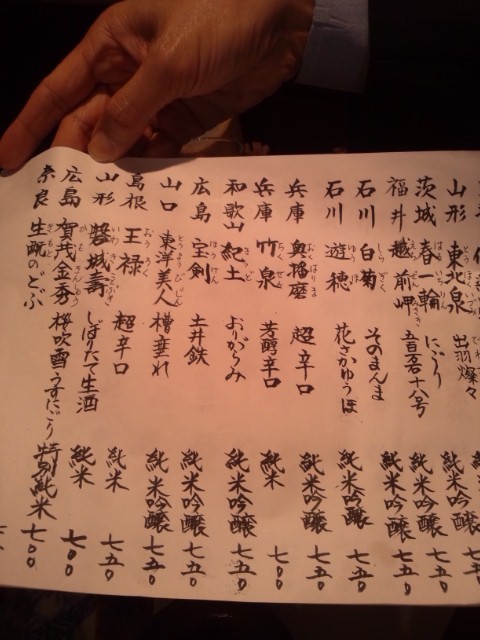 山形 東北泉 出羽燦々 純米吟醸 七五〇
茨城 春一輪 にごり 純米吟醸 七五〇
福井 越前岬 五百石十八号 純米吟醸 七五〇
石川 白菊 そのまんま 純米吟醸 七五〇
石川 遊穂 花さかゆうほ 純米吟醸 七五〇
兵庫 奥播磨 超辛口 純米吟醸 七五〇
兵庫 竹泉 芳醇辛口 純米 七〇〇
和歌山 紀土 よりがらみ 純米吟醸 七五〇
広島 宝剣 土井鉄 純米吟醸 七五〇
山口 東洋美人 槽垂れ 純米吟醸 七五〇
島根 王禄 超辛口 純米 七五〇
山形 磐城壽 しぼりたて生酒 純米 七五〇
広島 賀茂金秀 桜吹雪うすにごり 特別純米 七〇〇
奈良 生酛のどぶ 純米 七〇〇